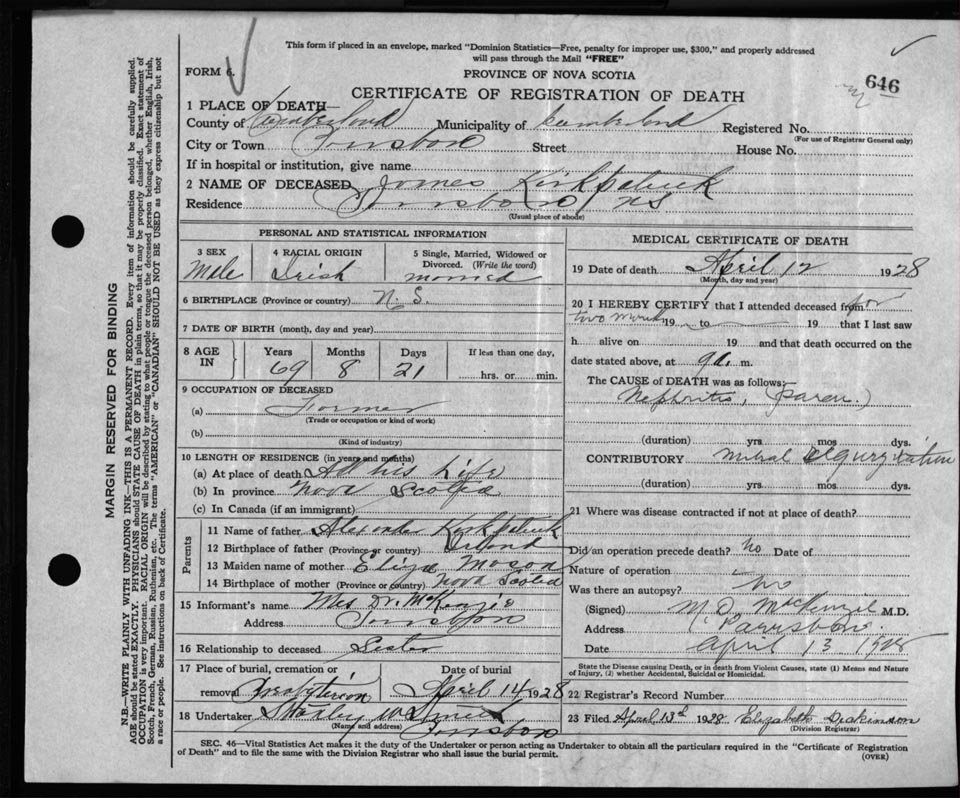 This form if placed in an envelope, marked "Dominion Statistics—Free, penalty for improper use, $300," and properly addressed
will pass through the Mail "FREE"
FORM 6.
PROVINCE OF NOVA SCOTIA
646
CERTIFICATE OF REGISTRATION OF DEATH
1 PLACE OF DEATH—
County of Cumberland Municipality of Cumberland Registered No.
(For use of Registrar General only)
City or Town Parrsboro Street House No.
If in hospital or institution, give name
2 NAME OF DECEASED James Kirkpatrick
Residence Parrsboro NS
(Usual place of abode)
PERSONAL AND STATISTICAL INFORMATION
3 SEX 4 RACIAL ORIGIN 5 Single, Married, Widowed or Divorced. (Write the word)
Male Irish married
6 BIRTHPLACE (Province or country) N.S.
7 DATE OF BIRTH (month, day and year)
8 AGE IN Years Months Days If less than one day,
69 8 21 hrs. or min.
9 OCCUPATION OF DECEASED
(a) Farmer
(Trade or occupation or kind of work)
(b)
(Kind of industry)
10 LENGTH OF RESIDENCE (in years and months)
(a) At place of death All his Life
(b) In province Nova Scotia
(c) In Canada (if an immigrant)
Parents
11 Name of father Alexander Kirkpatrick
12 Birthplace of father (Province or country) Ireland
13 Maiden name of mother Eliza Mason
14 Birthplace of mother (Province or country) Nova Scotia
15 Informant's name Mrs Dr. McKenzie
Address Parrsboro
16 Relationship to deceased Sister
17 Place of burial, cremation or removal Presbyterian Date of burial April 14 1928
18 Undertaker Stanley W
(Name and address) Parrsboro
MEDICAL CERTIFICATE OF DEATH
19 Date of death April 12 1928
(Month, day and year)
20 I HEREBY CERTIFY that I attended deceased from for
two months 19 to 19 that I last saw
h alive on 19 and that death occurred on the
date stated above, at 9 a. m.
The CAUSE of DEATH was as follows:
Nephritis, (paren.)
(duration) yrs mos dys.
CONTRIBUTORY Mitral regurgitation
(duration) yrs. mos dys.
21 Where was disease contracted if not at place of death?
Did an operation precede death? no Date of
Nature of operation
Was there an autopsy? no
(Signed) M.D. MacKenzie M.D.
Address Parrsboro.
Date April 13 1928
State the Disease causing Death, or in death from Violent Causes, state (1) Means and Nature
of Injury, (2) whether Accidental, Suicidal or Homicidal.
22 Registrar's Record Number
23 Filed April 13th 1928 Elizabeth Dickinson
(Division Registrar)
SEC. 46—Vital Statistics Act makes it the duty of the Undertaker or person acting as Undertaker to obtain all the particulars required in the "Certificate of Registration
of Death" and to file the same with the Division Registrar who shall issue the burial permit.
(OVER)
MARGIN RESERVED FOR BINDING
N.B.—WRITE PLAINLY WITH UNFADING INK—THIS IS A PERMANENT RECORD. Every item of information should be carefully supplied.
AGE should be stated EXACTLY. PHYSICIANS should STATE CAUSE OF DEATH in plain terms, so that it may be properly classified. Exact statement of
OCCUPATION is very important. RACIAL ORIGIN will be described by stating to what people or tongue the deceased person belonged, whether English, Irish,
Scotch, French, German, Russian, Ruthenian, etc. The terms "AMERICAN" or "CANADIAN" SHOULD NOT BE USED as they express citizenship but not
a race or people. See instructions on back of Certificate.